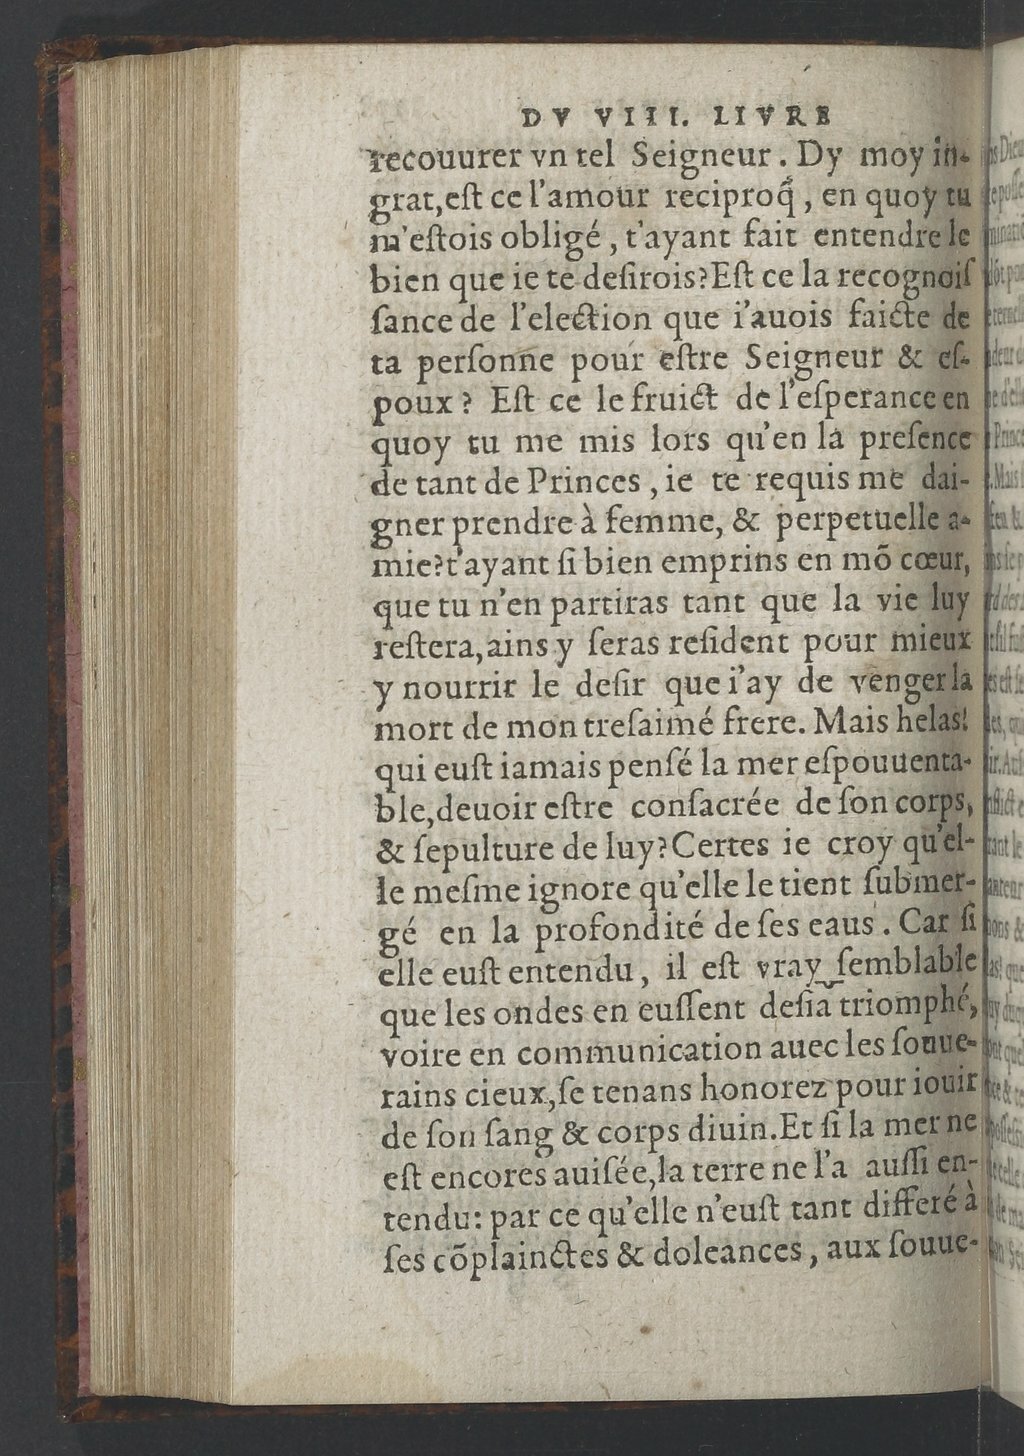 DV VIII. LIVRE
recouurer vn tel Seigneur. Dy moy in-
grat, eſt ce l'amour reciproq̃, en quoy tu
m'eſtois obligé, t'ayant fait entendre le
bien que ie te deſirois? Eſt ce la recognoiſ
ſance de l'election que i'auois faicte de
ta perſonne pour eſtre Seigneur & eſ-
poux? Eſt ce le fruict de l'eſperance en
quoy tu me mis lors qu'en la preſence
de tant de Princes, ie te requis me dai-
gner prendre à femme, & perpetuelle a-
mie? t'ayant ſi bien emprins en mõ cœur,
que tu n'en partiras tant que la vie luy
reſtera, ains y ſeras reſident pour mieux
y nourrir le deſir que i'ay de venger la
mort de mon treſaimé frere. Mais helas!
qui euſt iamais penſé la mer eſpouuenta-
ble, deuoir eſtre conſacrée de ſon corps,
& ſepulture de luy? Certes ie croy qu'el-
le meſme ignore qu'elle le tient ſubmer-
gé en la profondité de ſes eaus. Car ſi
elle euſt entendu, il eſt vray‿ſemblable
que les ondes en euſſent deſia triomphé,
voire en communication auec les ſouue-
rains cieux, ſe tenans honorez pour iouir
de ſon ſang & corps diuin. Et ſi la mer ne
eſt encores auiſée, la terre ne l'a auſſi en-
tendu: par ce qu'elle n'euſt tant differé à
ſes cõplainctes & doleances, aux ſouue-